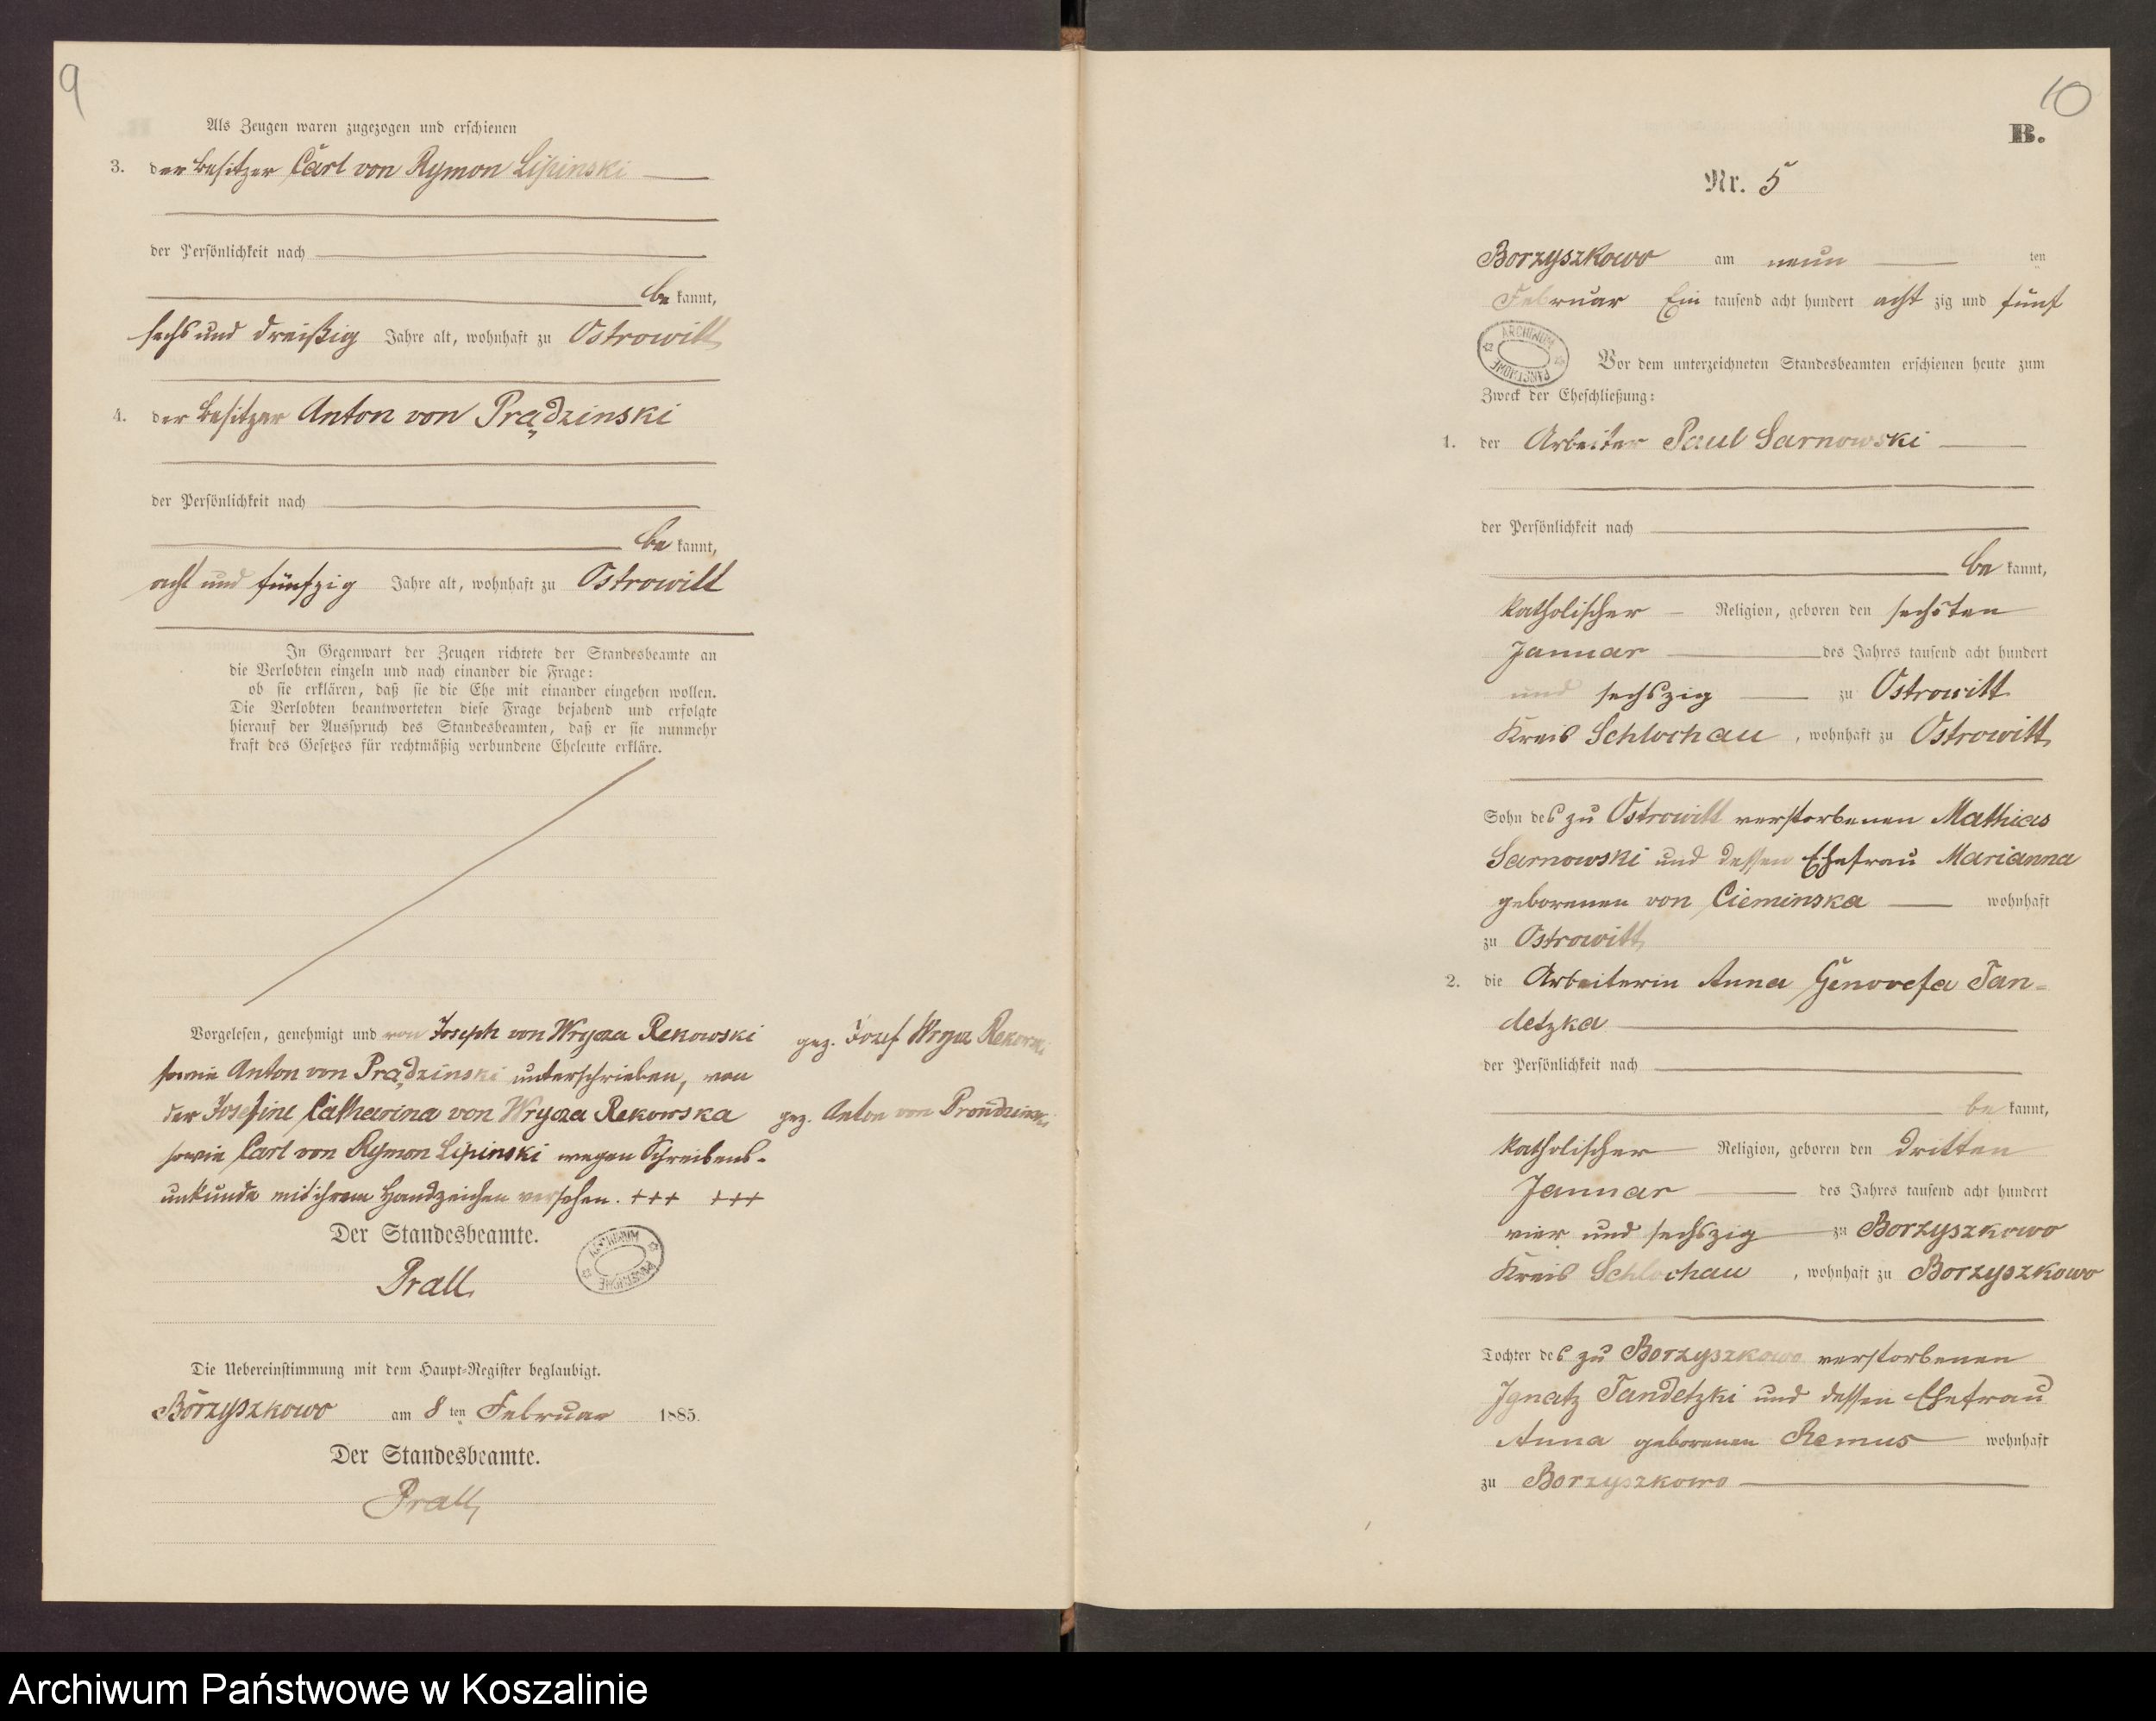 9
Als Zeugen waren zugezogen und erschienen
3. der Besitzer Carl von Rymon Lipinski
der Persönlichkeit nach
be kannt,
sechs und dreißig Jahre alt, wohnhaft zu Ostrowitt
4. der Besitzer Anton von Prądzinski
der Persönlichkeit nach
be kannt,
acht und fünfzig Jahre alt, wohnhaft zu Ostrowitt
In Gegenwart der Zeugen richtete der Standesbeamte an
die Verlobten einzeln und nach einander die Frage:
ob sie erklären, daß sie die Ehe mit einander eingehen wollen.
Die Verlobten beantworteten diese Frage bejahend und erfolgte
hierauf der Ausspruch des Standesbeamten, daß er sie nunmehr
kraft des Gesetzes für rechtmäßig verbundene Eheleute erkläre.
Vorgelesen, genehmigt und von Joseph von Wrycza Rekowski
sowie Anton von Prądzinski unterschrieben, von
der Josefine Catharina von Wrycza Rekowska
sowie Carl von Rymon Lipinski wegen Schreibens-
unkunde mit ihrem Handzeichen versehen. +++ +++
gez. Jozef Wryza Rekowski
gez. Anton von Prondzinski
Der Standesbeamte.
Prall
ARCHIWUM PAŃSTWOWE
Die Uebereinstimmung mit dem Haupt-Register beglaubigt.
Borzyszkowo am 8 ten Februar 1885.
Der Standesbeamte.
Prall
10
B.
Nr. 5
Borzyszkowo am neun ten
Februar Ein tausend acht hundert acht zig und fünf
ARCHIWUM PAŃSTWOWE
Vor dem unterzeichneten Standesbeamten erschienen heute zum
Zweck der Eheschließung:
1. der Arbeiter Paul Sarnowski
der Persönlichkeit nach
be kannt,
katholischer Religion, geboren den sechsten
Januar des Jahres tausend acht hundert
und sechszig zu Ostrowitt
Kreis Schlochau, wohnhaft zu Ostrowitt
Sohn des zu Ostrowitt verstorbenen Mathias
Sarnowski und dessen Ehefrau Marianna
geborenen von Cieminska wohnhaft
zu Ostrowitt
2. die Arbeiterin Anna Genovefa Tan-
detzka
der Persönlichkeit nach
be kannt,
katholischer Religion, geboren den dritten
Januar des Jahres tausend acht hundert
vier und sechszig zu Borzyszkowo
Kreis Schlochau, wohnhaft zu Borzyszkowo
Tochter des zu Borzyszkowo verstorbenen
Ignatz Tandetzki und dessen Ehefrau
Anna geborenen Remus wohnhaft
zu Borzyszkowo
Archiwum Państwowe w Koszalinie